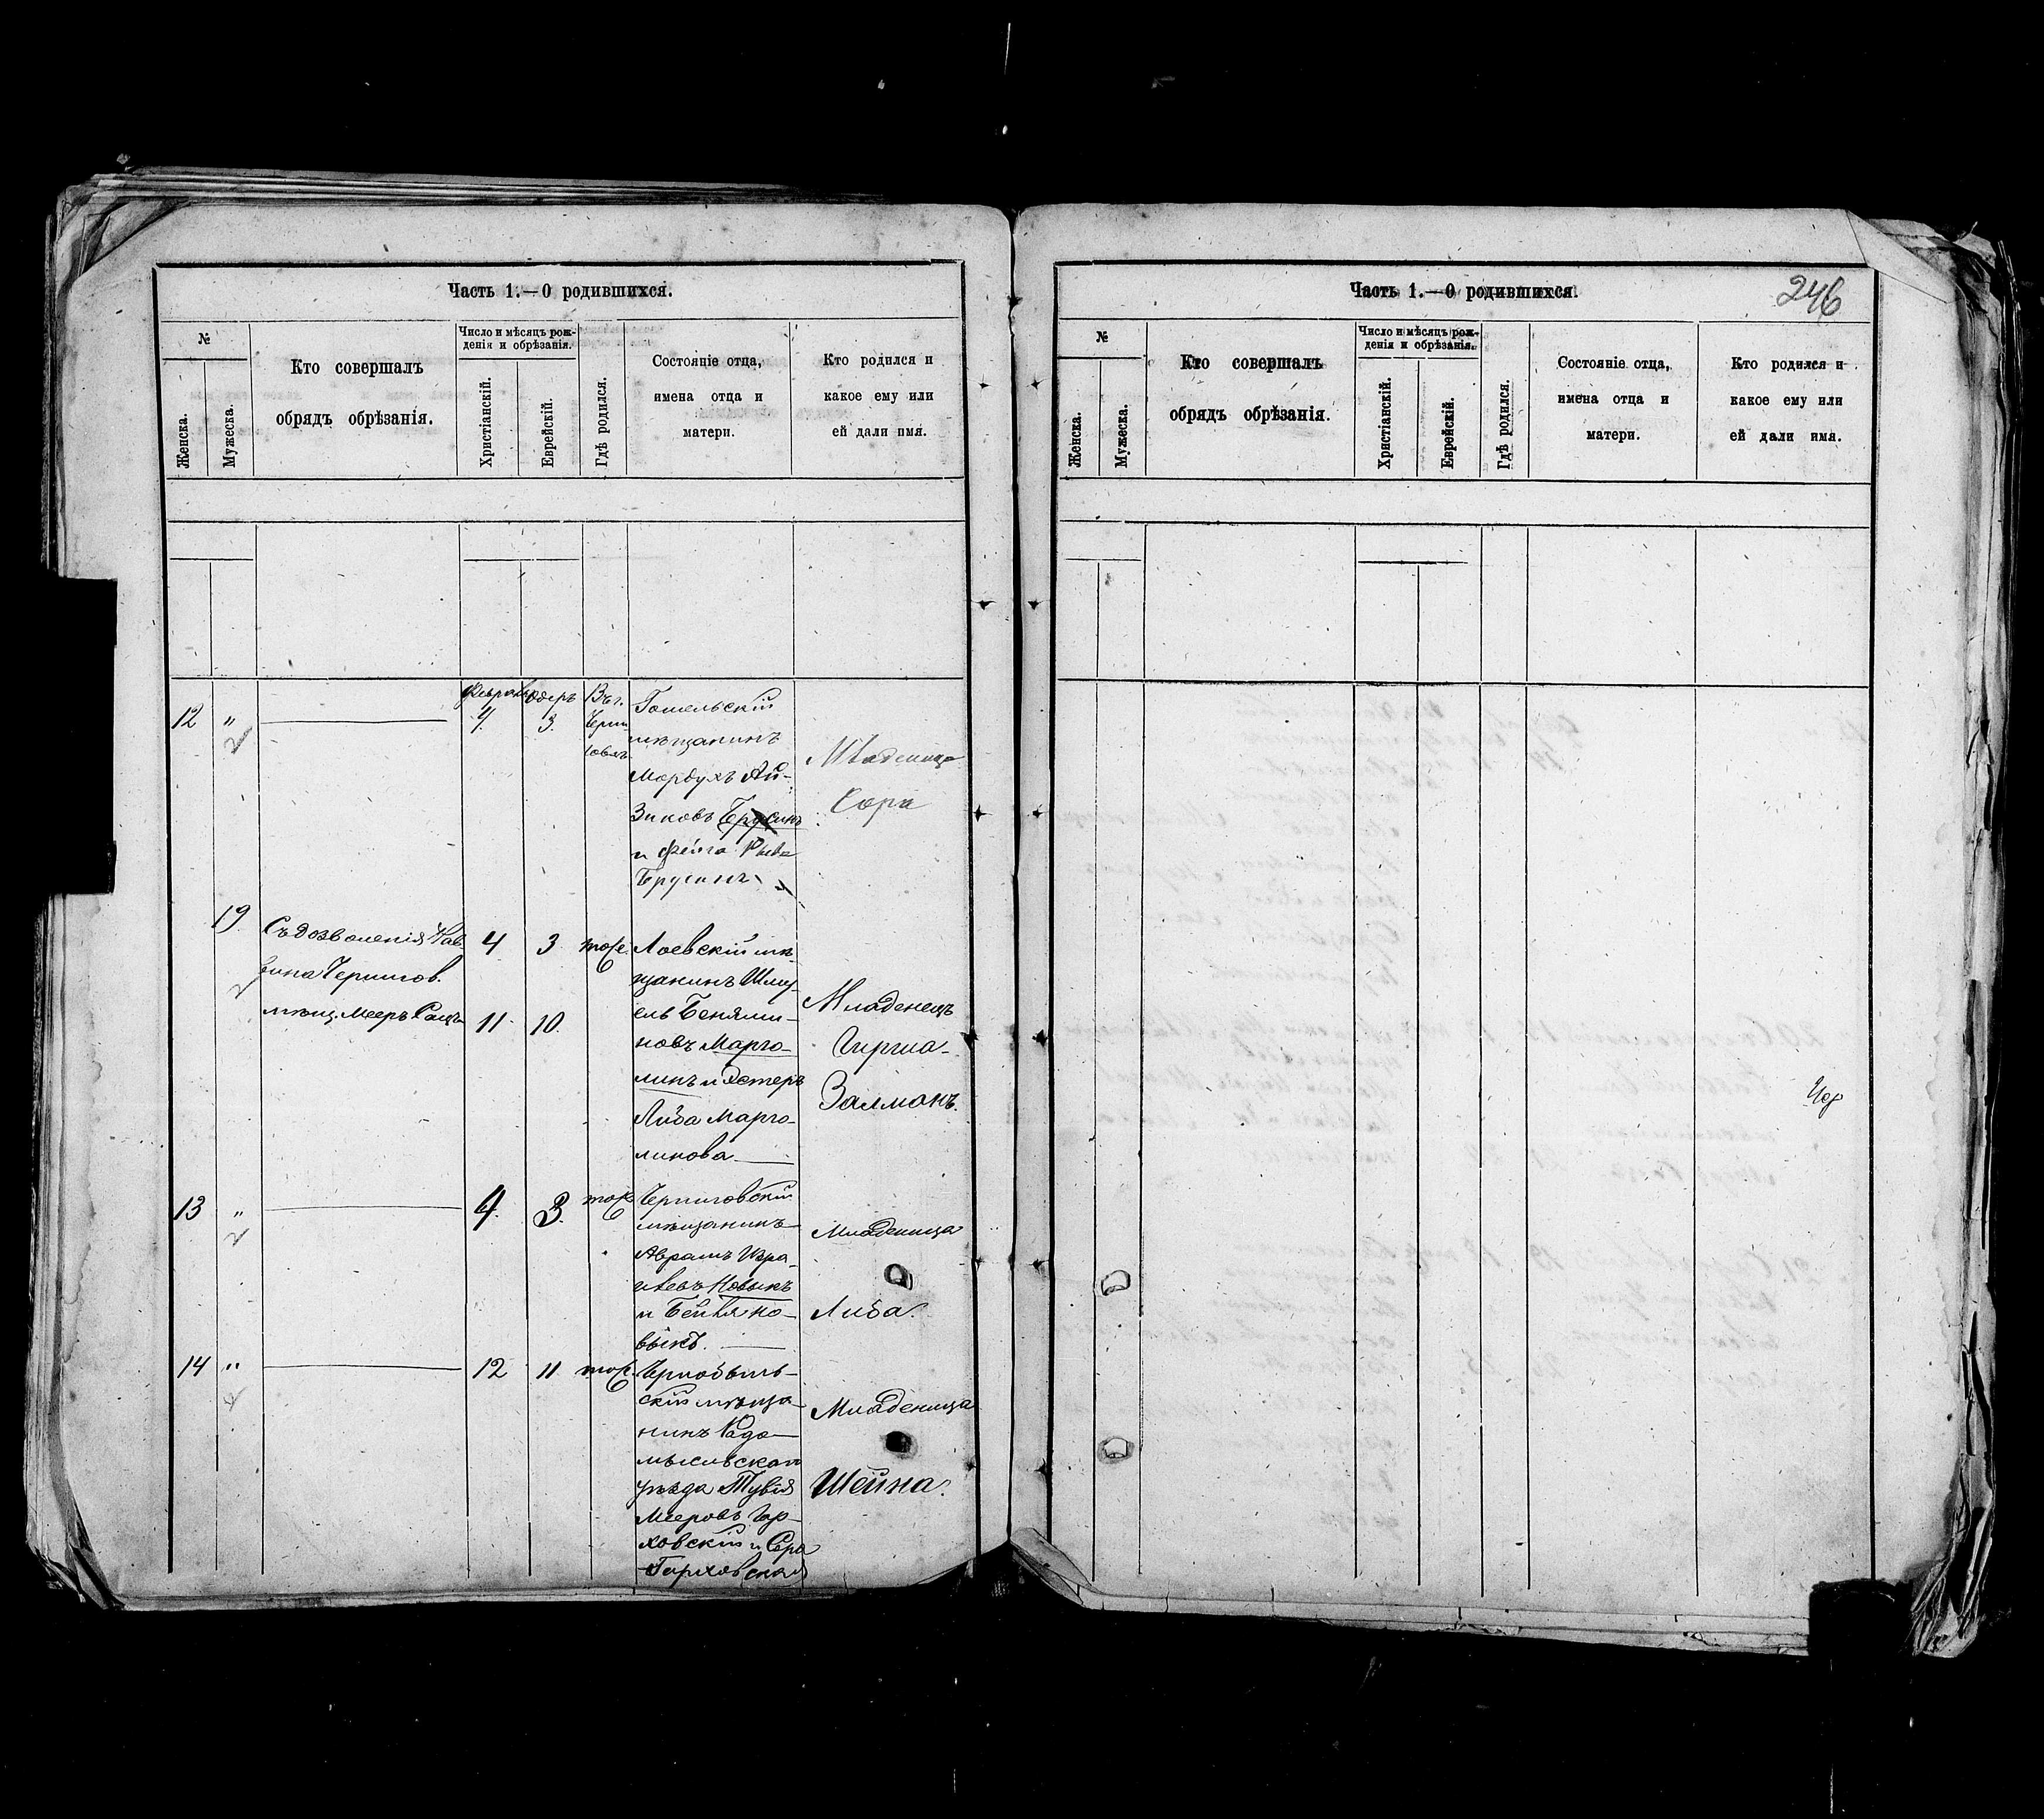 Часть 1.—О родившихся.
№
Женска.
Мужеска.
Кто совершалъ
обрядъ обрѣзанія.
Число и мѣсяцъ рож-
денія и обрѣзанія.
Христіанскій.
Еврейскій.
Гдѣ родился.
Состояніе отца,
имена отца и
матери.
Кто родился и
какое ему или
ей дали имя.
12
"
2
Февраль
4.
Адеръ
3.
Въ г.
Черни
говѣ
Гомельскій
мѣщанинъ
Мордухъ Ай-
зиковъ Брусинъ
и Фейга Рыва
Брусинъ
Младеница
Сора
19
2
Съ дозволенія Рав
вина Чернигов.
мѣщ. Мееръ
4
3
тоже
11.
10.
Лоевскій мѣ
щанинъ Шму
ель Бенями-
новъ Марго-
линъ и Эстеръ
Либа Марго-
линова
Младенецъ
Залманъ.
13
"
2
4.
3.
тоже
Черниговскій
мѣщанинъ
Аврамъ Изра-
илевъ Новикъ
и Бейля Но-
викъ.
Младеница
Либа.
14
"
12
11
тоже.
Чернобыль-
скій мѣща-
нинъ Радо-
мысльскаго
уѣзда Тувія
Мееровъ Гор-
ховскій и Сора
Горховская
Младеница
Шейна.
Часть 1.—О родившихся.
246
№
Женска.
Мужеска.
Кто совершалъ
обрядъ обрѣзанія.
Число и мѣсяцъ рож-
денія и обрѣзанія.
Христіанскій.
Еврейскій.
Гдѣ родился.
Состояніе отца,
имена отца и
матери.
Кто родился и
какое ему или
ей дали имя.